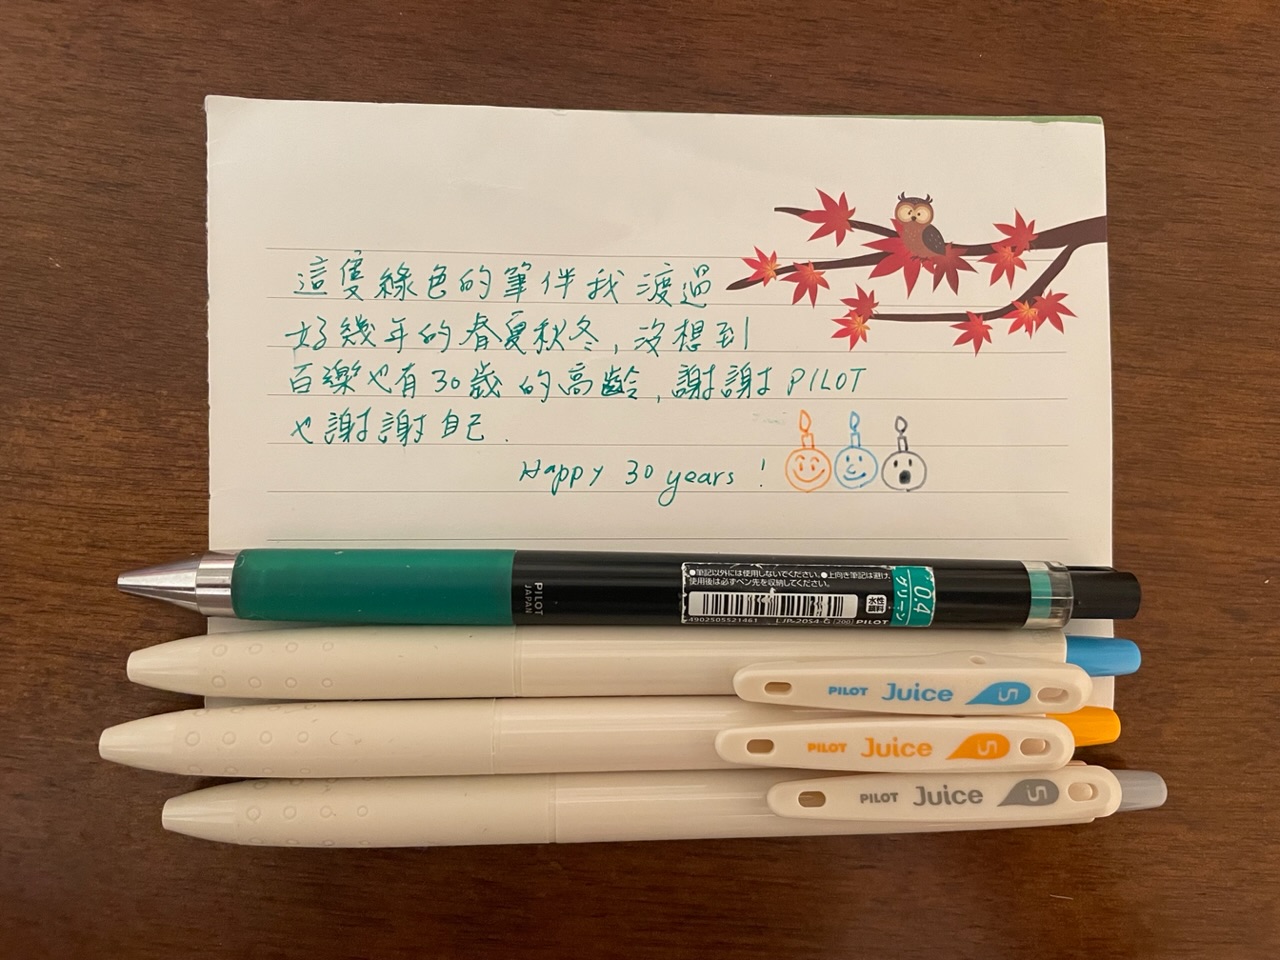 這隻綠色的筆伴我渡過
好幾年的春夏秋冬,沒想到
百樂也有30歲的高齡,謝謝PILOT
也謝謝自己.
Happy 30 years!
PILOT
JAPAN
●筆記以外には使用しないでください。●上向き筆記は避け、
使用後は必ずペン先を収納してください。
4902505521461 LJP-20S4-G [200] PILOT
水性
顔料
0.4
グリーン
PILOT Juice 5
PILOT Juice 5
PILOT Juice 5